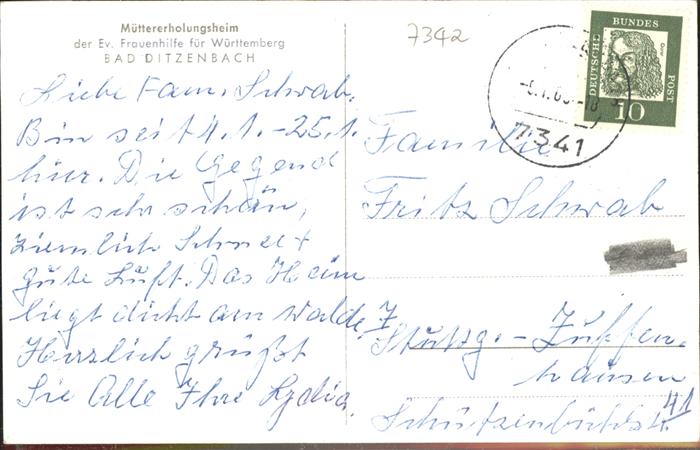 Müttererholungsheim
der Ev. Frauenhilfe für Württemberg
BAD DITZENBACH
Liebe Fam. Schwab.
Bin seit 4.1.-25.1.
hier. Die Gegend
ist sehr schön,
ziemlich Schnee +
gute Luft. Das Heim
liegt dicht am Walde.
Herzlich grüßt
Sie Alle Ihre Lydia.
7342
DEUTSCHE BUNDES POST
10
7341
Familie
Fritz Schwab
7
Stuttg.-Zuffen-
hausen
41